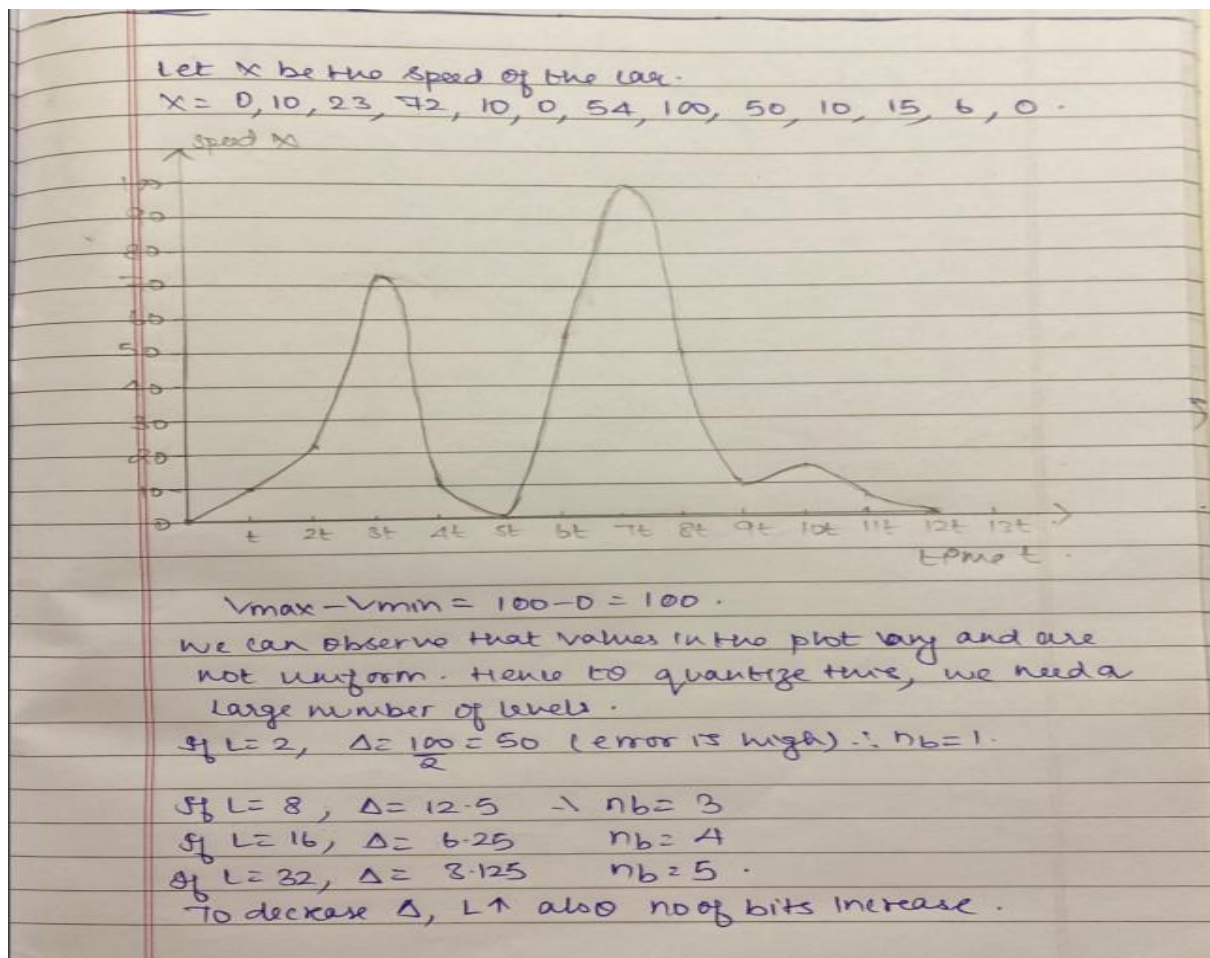 Let x be the speed of the car.
x = 0, 10, 23, 72, 10, 0, 54, 100, 50, 10, 15, 6, 0.
speed x
100
90
80
70
60
50
40
30
20
10
0
t 2t 3t 4t 5t 6t 7t 8t 9t 10t 11t 12t 13t
time t.
Vmax-Vmin = 100-0 = 100.
we can observe that values in the plot vary and are
not uniform. Hence to quantize this, we need a
large number of levels.
If L=2, Δ= 100/2 = 50 (error is high) ∴ nb=1.
If L= 8, Δ= 12.5 → nb= 3
If L= 16, Δ= 6.25 nb= 4
If L= 32, Δ= 3.125 nb= 5.
To decrease Δ, L↑ also no of bits increase.